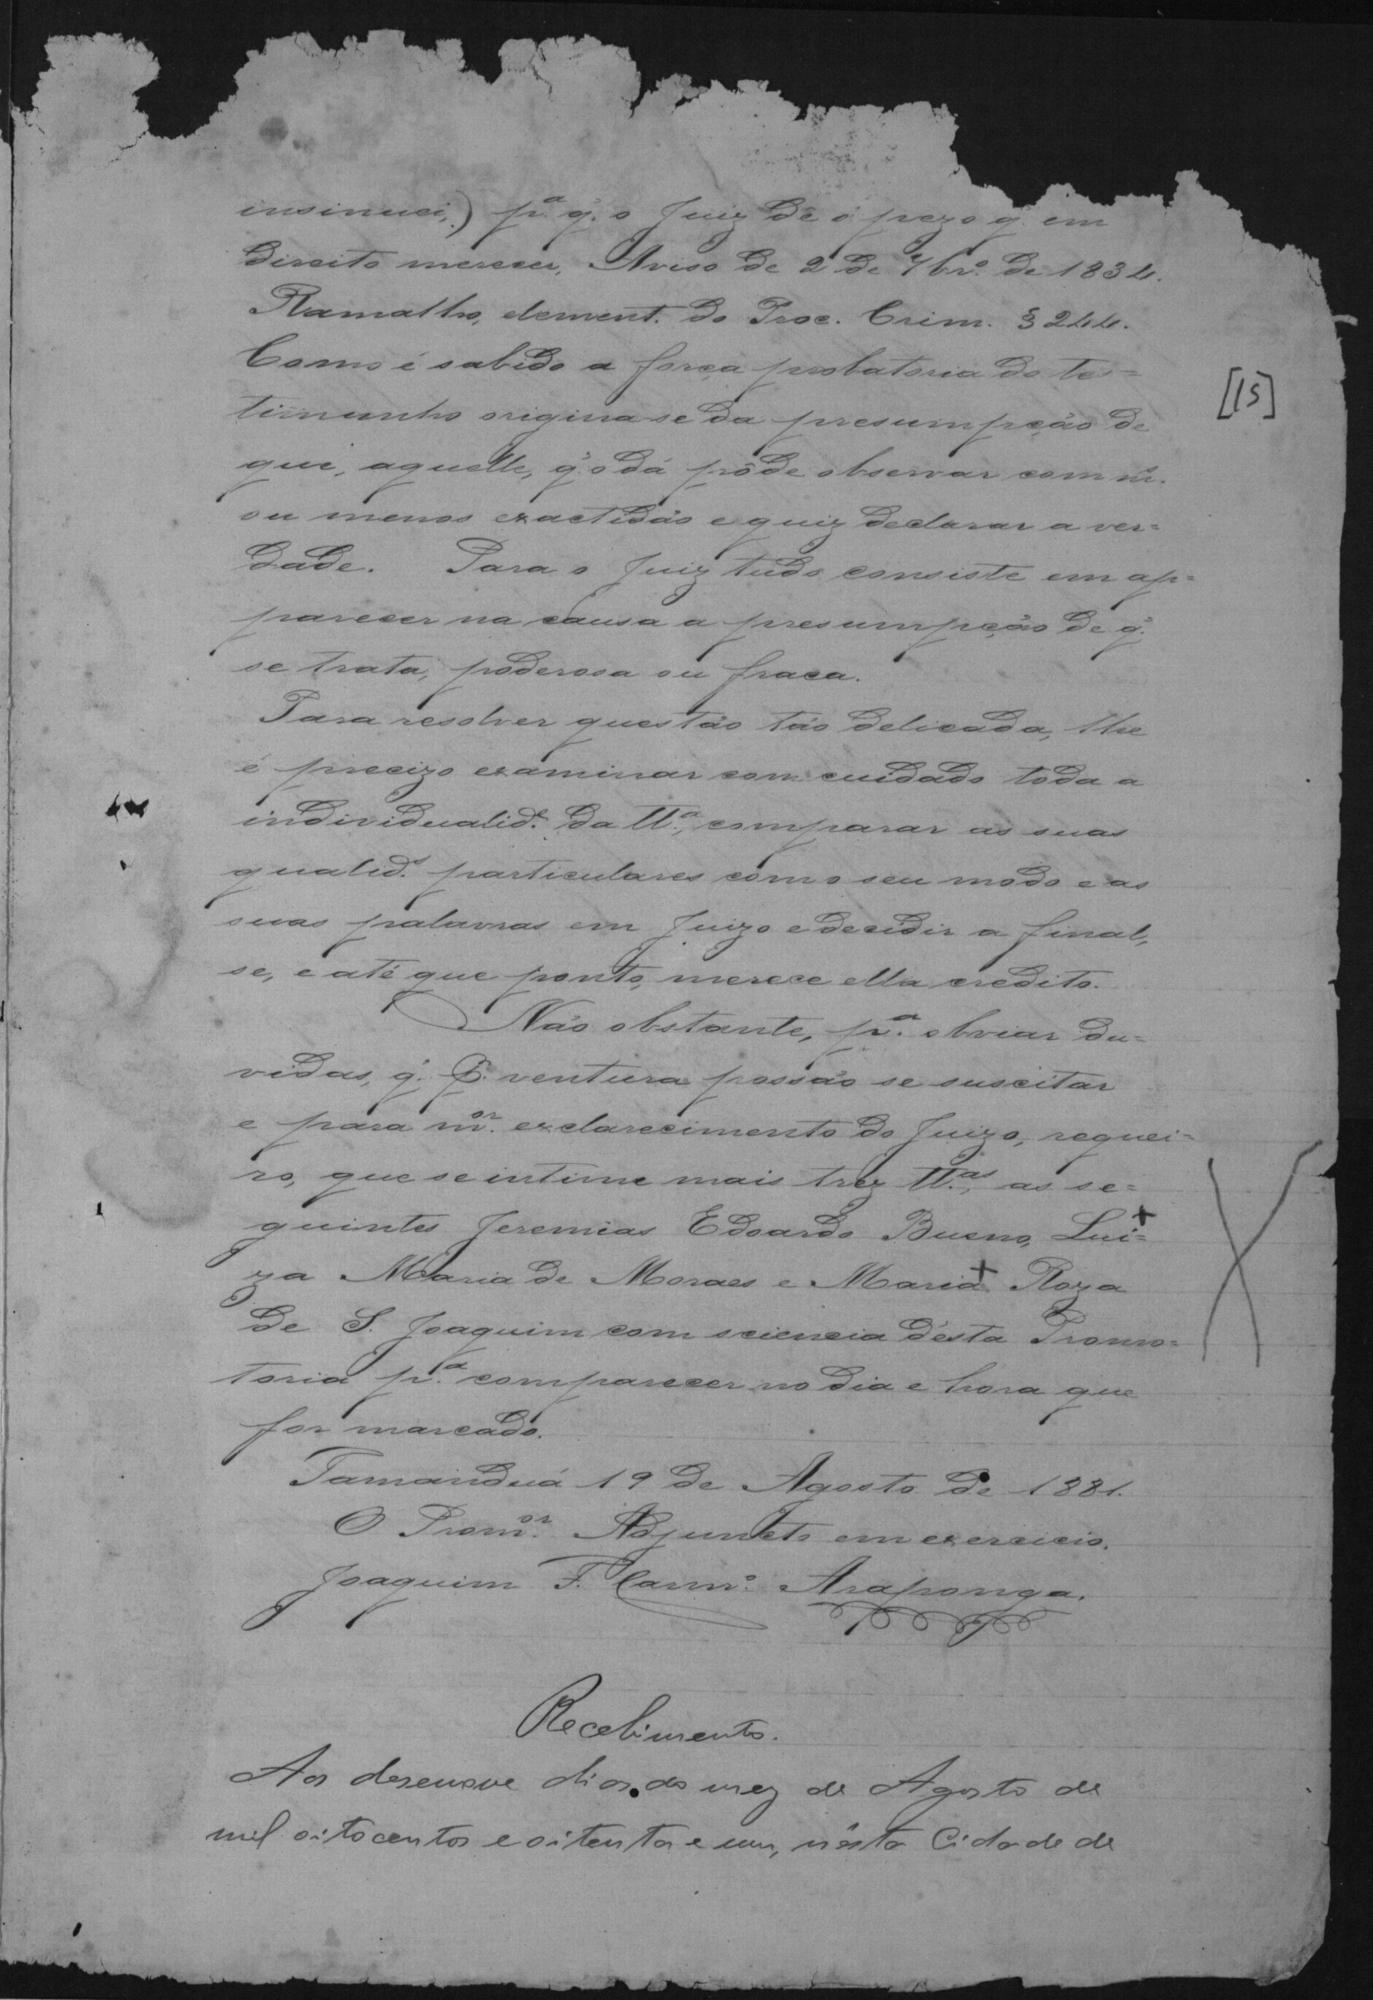 insinuei,) p.ª q̃. o Juiz dê o pezo q̃. em
direito merecer, Aviso de 2 de 7br.º de 1834.
Ramalho, element. do Proc. Crim. § 244.
Como é sabido a força probatoria do tes=
timunho origina-se da presumpção de
que, aquelle, q̃. o dá pôde observar com m.
ou menos exactidão e quiz declarar a ver=
dade. Para o Juiz tudo consiste em ap=
parecer na causa a presumpção de q̃.
se trata, poderosa ou fraca.
Para resolver questão tão delicada, lhe
é precizo examinar com cuidado toda a
individualid.ᵉ da tt.ª, comparar as suas
qualid.ˢ particulares com o seu modo e as
suas palavras em Juizo e decidir a final,
se, e até que ponto, merece ella credito.
Não obstante, p.ª obviar du=
vidas, q̃. p. ventura possão se suscitar
e para m.ᵒʳ exclarecimento do Juizo, requei=
ro, que se intime mais trez tt.ᵃˢ, as se=
guintes Jeremias Edoardo Bueno, Lui=
za Maria de Moraes e Maria Roza
de S. Joaquim com sciencia d'esta Promo=
toria p.ª comparecer no dia e hora que
for marcado.
Tamanduá 19 de Agosto de 1881.
O Prom.ᵒʳ Adjuncto em exercicio.
Joaquim F. Carn.º Araponga.
Recebimento.
Aos desenove dias do mez de Agosto de
mil oitocentos e oitenta e um, nésta Cidade de
[15]